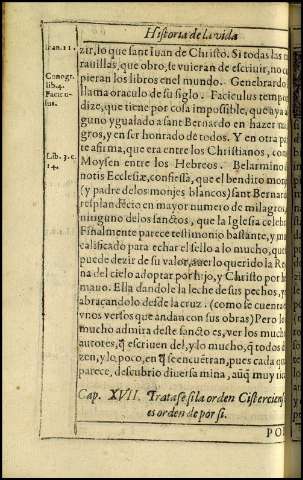 Historia de la vida
Ioan. 21.
Conogr.
lib. 4.
Facicu-
lus.
Lib. 3. c.
14.
zir, lo que sant Iuan de Christo. Si todas las
rauillas, que obro, se vuieran de escreuir, no
pieran los libros en el mundo. Genebrardo
llama oraculo de su siglo. Faciculus temp
dize, que tiene por cosa impossible, que aya
guno ygualado a sant Bernardo en hazer
gros, y en ser honrado de todos. Y en otra
te afirma, que era entre los Christianos, con
Moysen entre los Hebreos. Belarmino
notis Ecclesiæ, confiessa, que el bendito mon
(y padre de los monjes blancos) sant Bernar
resplandecio en mayor numero de milagros
ninguno de los sanctos, que la Iglesia celeb
Finalmente parece testimonio bastante, y
calificado para echar el sello a lo mucho, que
puede dezir de su valor, auerlo querido la Re
na del cielo adoptar por hijo, y Christo por
mano. Ella dandole la leche de sus pechos, y
abraçandolo desde la cruz. (como se cuenta
vnos versos que andan con sus obras) Pero lo
mucho admira deste sancto es, ver los much
autores, q̃ escriuen del, y lo mucho, q̃ todos
zen, y lo poco, en q̃ se encuẽtran, pues cada
parece, descubrio diuersa mina, aũq̃ muy
Cap. XVII. Tratase si la orden Cistercien
es orden de por si.
PO